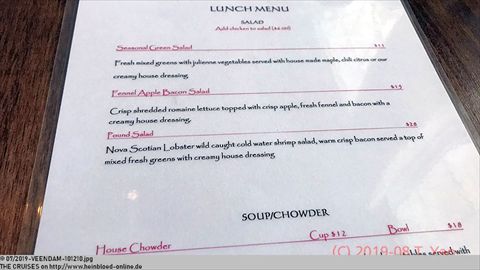 LUNCH MENU
SALAD
Add chicken to salad
Seasonal Green Salad $11
Fresh mixed greens with julienne vegetables served with house made maple, chili citrus or our
creamy house dressing
Fennel Apple Bacon Salad $15
Crisp shredded romaine lettuce topped with crisp apple, fresh fennel and bacon with a
creamy house dressing.
Found Salad $28
Nova Scotian Lobster wild caught cold water shrimp salad, warm crisp bacon served a top of
mixed fresh greens with creamy house dressing
SOUP/CHOWDER
House Chowder Cup $12 Bowl $18
served with
(C) 2018-08 T.
© 07/2019-VEENDAM-101210.jpg
THE CRUISES on http://www.heinbloed-online.de